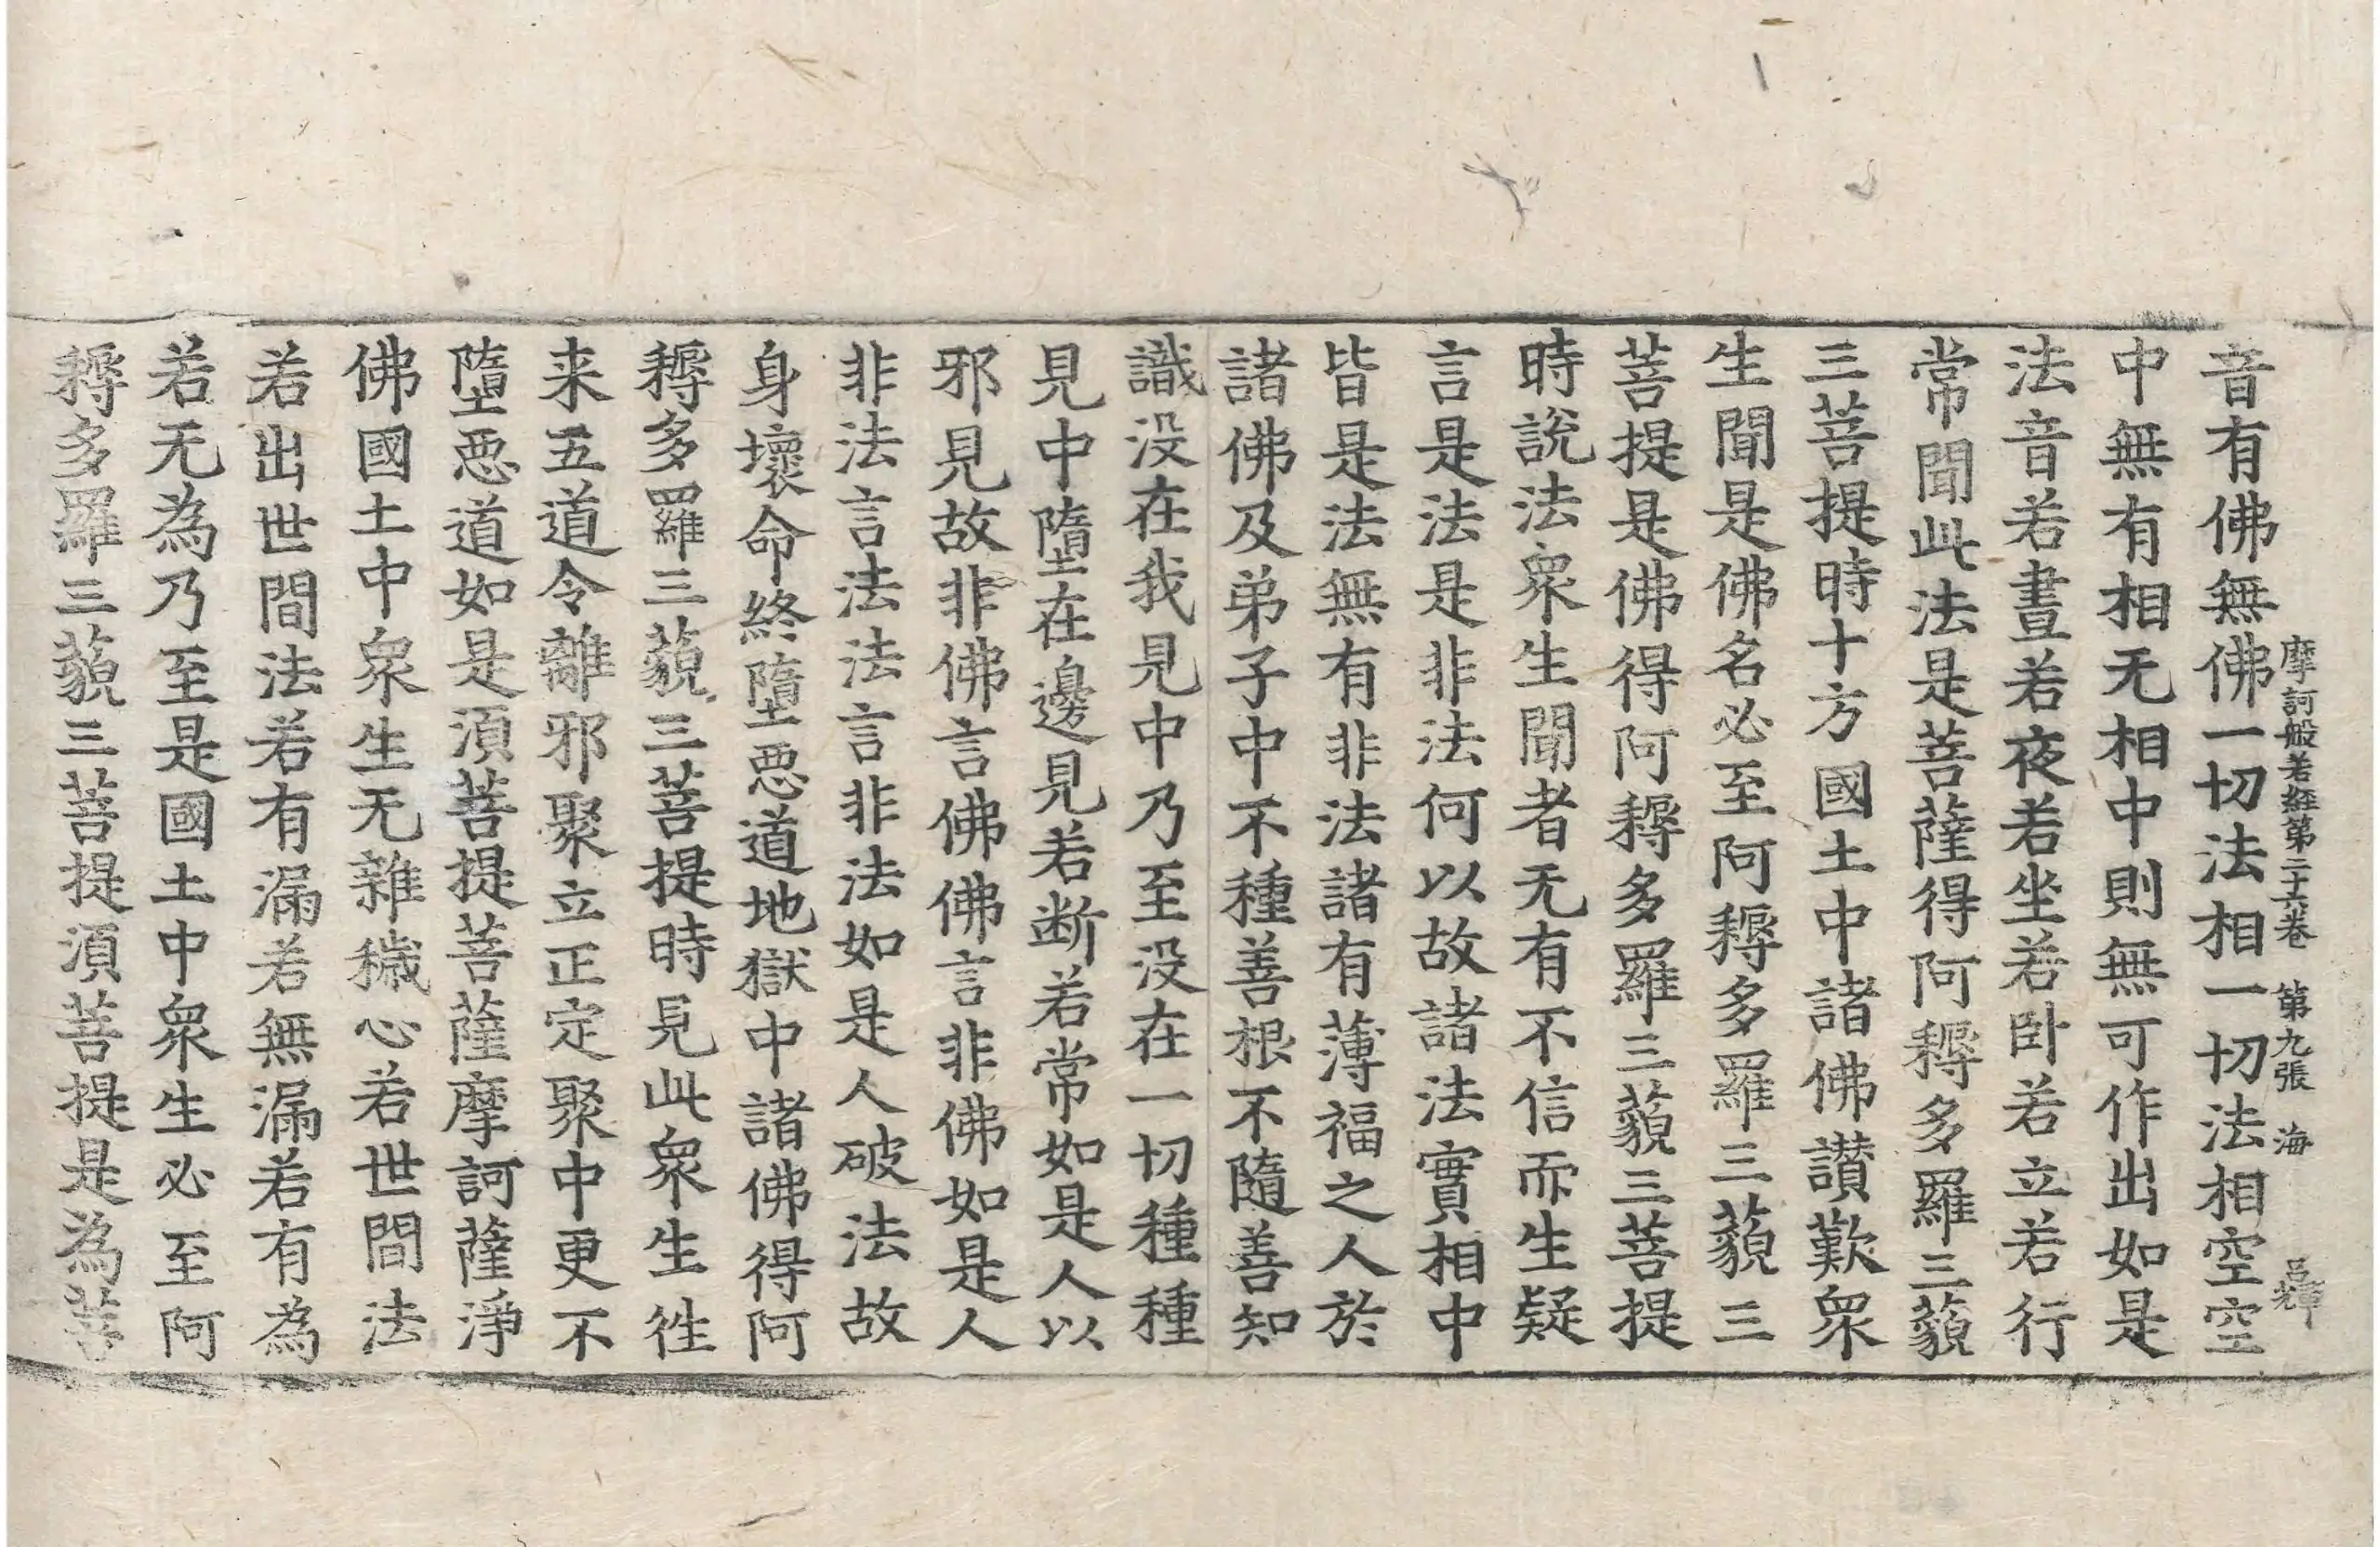 摩訶般若經第二十六卷　第九張　海
音有佛無佛一切法相一切法相空空
中無有相无相中則無可作出如是
法音若晝若夜若坐若卧若立若行
常聞此法是菩薩得阿耨多羅三藐
三菩提時十方國土中諸佛讃歎衆
生聞是佛名必至阿耨多羅三藐三
菩提是佛得阿耨多羅三藐三菩提
時說法衆生聞者无有不信而生疑
言是法是非法何以故諸法實相中
皆是法無有非法諸有薄福之人於
諸佛及弟子中不種善根不隨善知
識没在我見中乃至没在一切種種
見中墮在邊見若断若常如是人以
邪見故非佛言佛佛言非佛如是人
非法言法法言非法如是人破法故
身壞命終墮惡道地獄中諸佛得阿
耨多羅三藐三菩提時見此衆生徃
来五道令離邪聚立正定聚中更不
墮惡道如是湏菩提菩薩摩訶薩淨
佛國土中衆生无雜穢心若世間法
若出世間法若有漏若無漏若有為
若无為乃至是國土中衆生必至阿
耨多羅三藐三菩提湏菩提是為菩